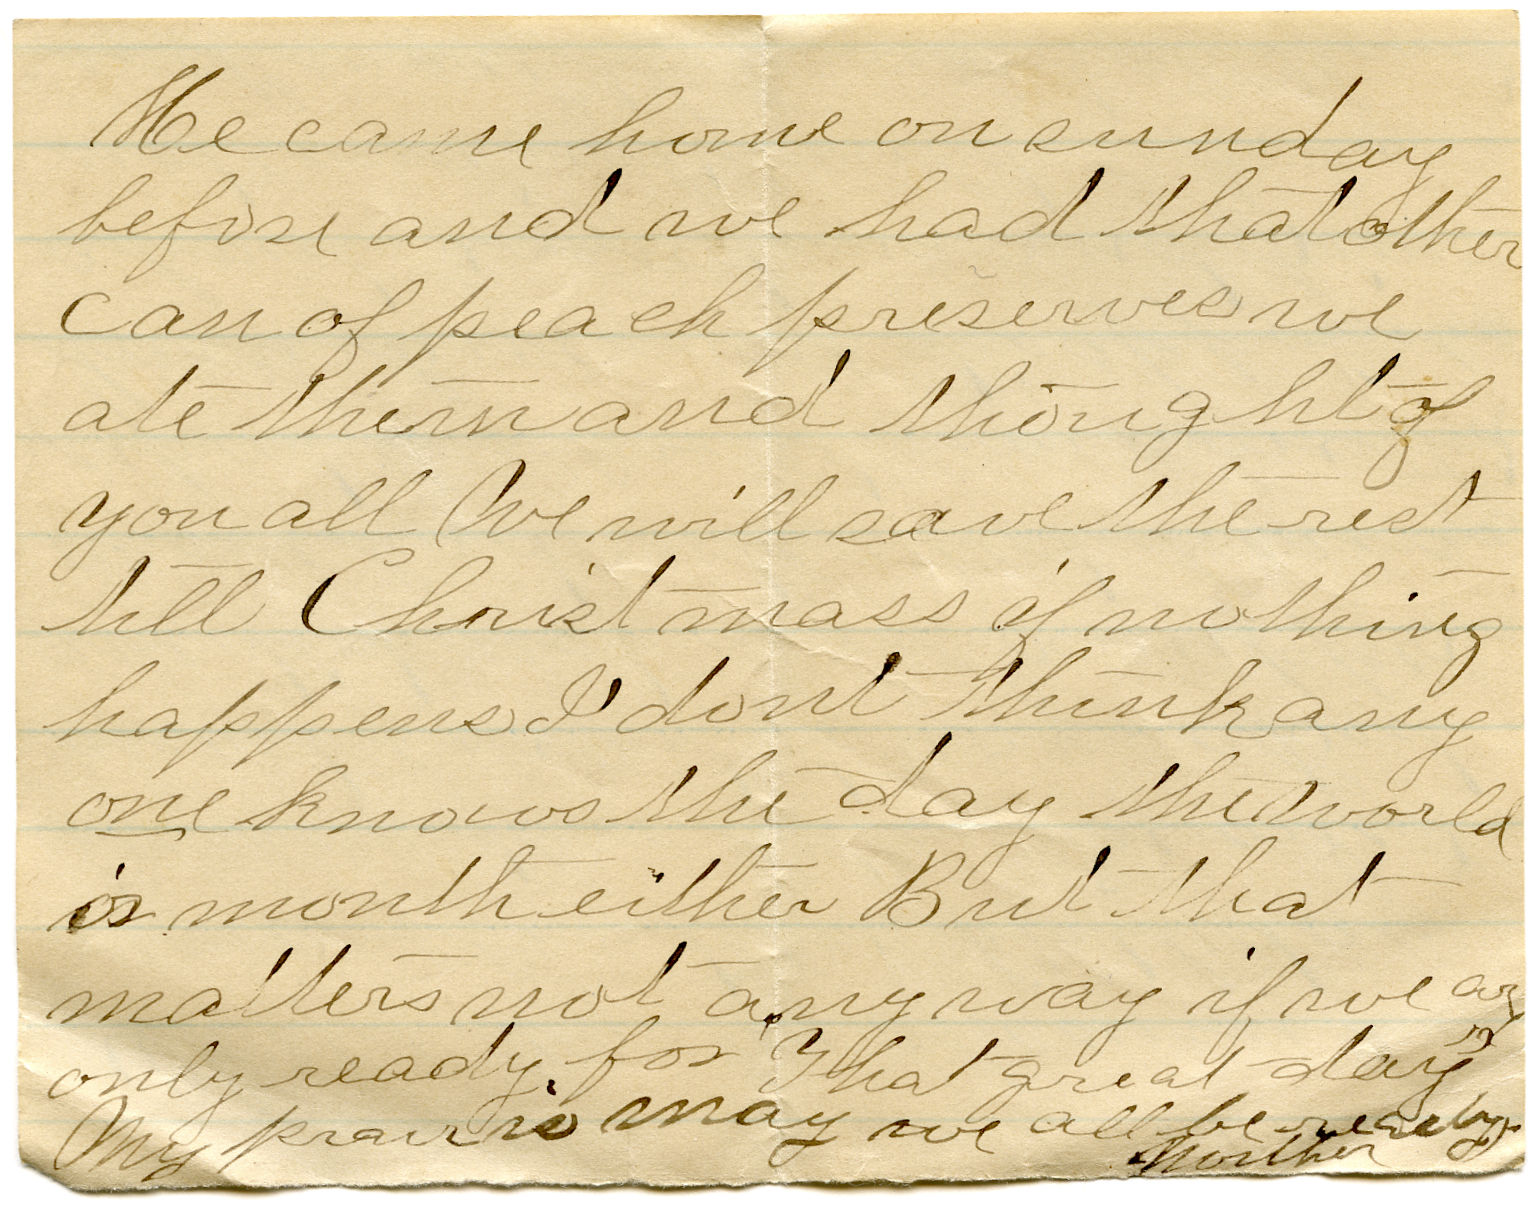 He came home on sunday
before and we had that other
can of peach preserves we
ate them and thought of
you all We will save the rest
till Christmass if nothing
happens I dont think any
one knows the day the world
is month either But that
matters not any way if we are
only ready for That great day
My prair is may we all be ready